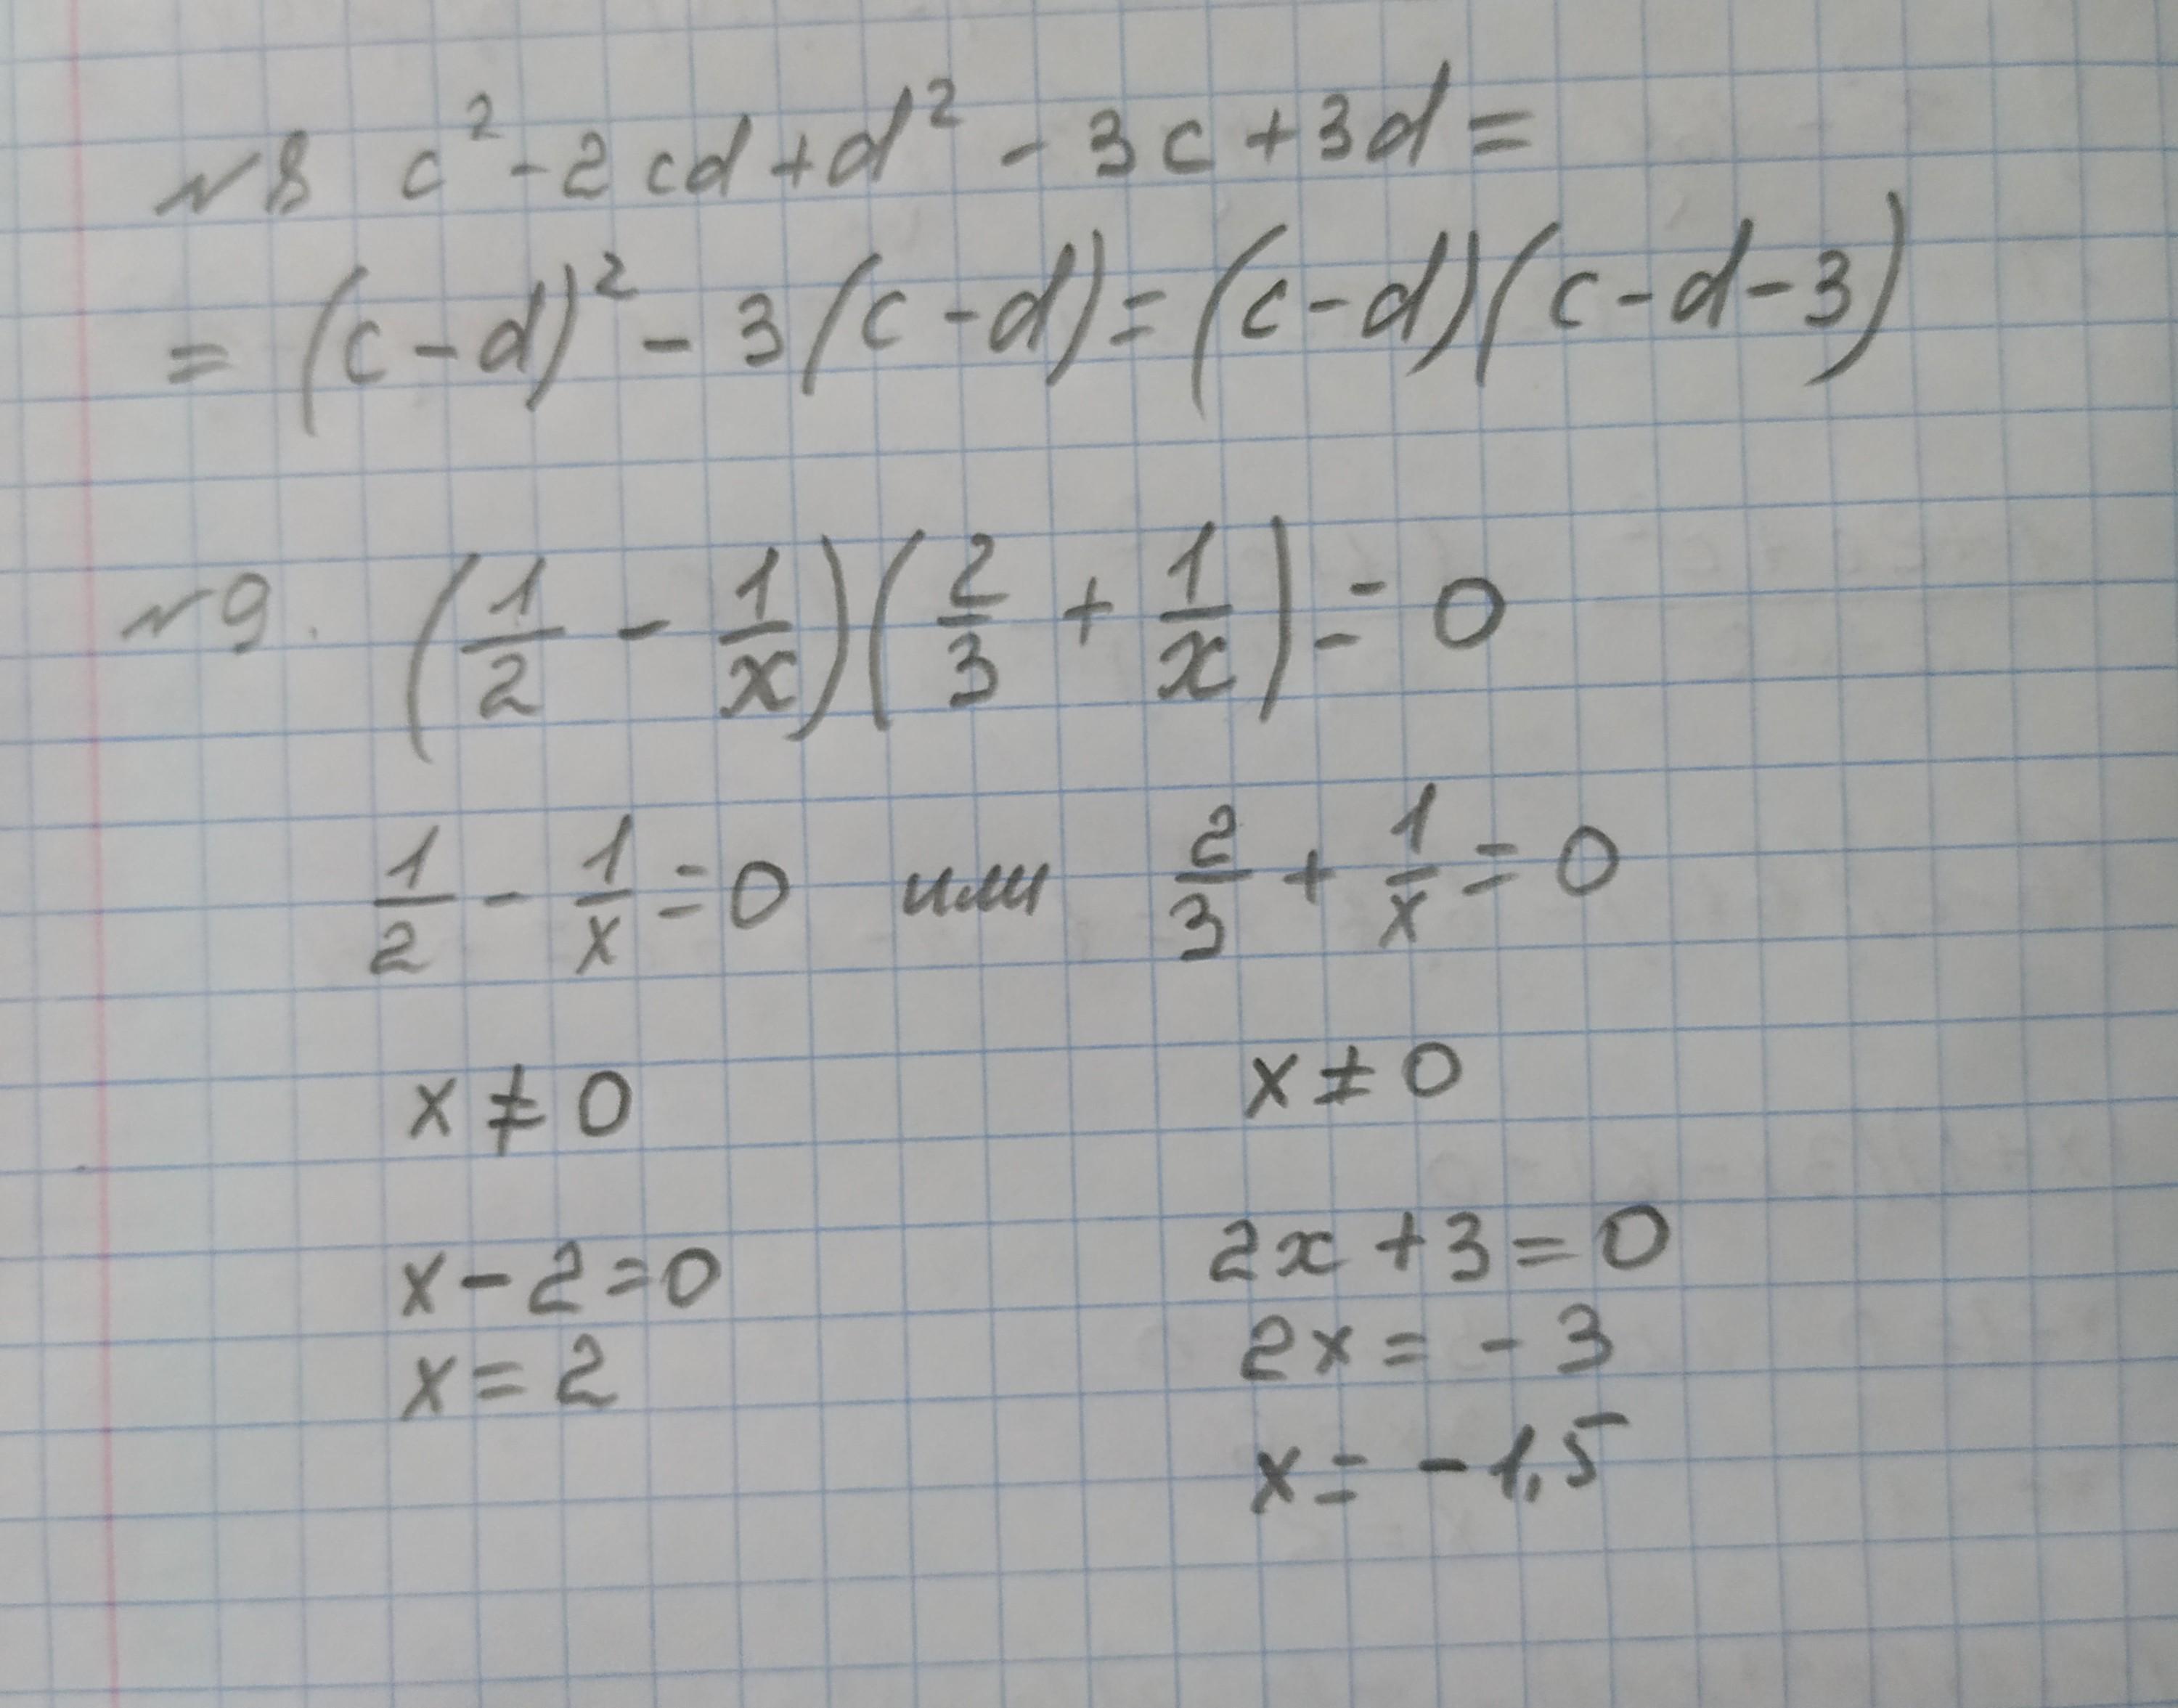 №8 c² - 2cd + d² - 3c + 3d =
= (c - d)² - 3(c - d) = (c - d)(c - d - 3)
№9. (1/2 - 1/x)(2/3 + 1/x) = 0
1/2 - 1/x = 0 или 2/3 + 1/x = 0
x ≠ 0 x ≠ 0
x - 2 = 0 2x + 3 = 0
x = 2 2x = - 3
x = - 1,5